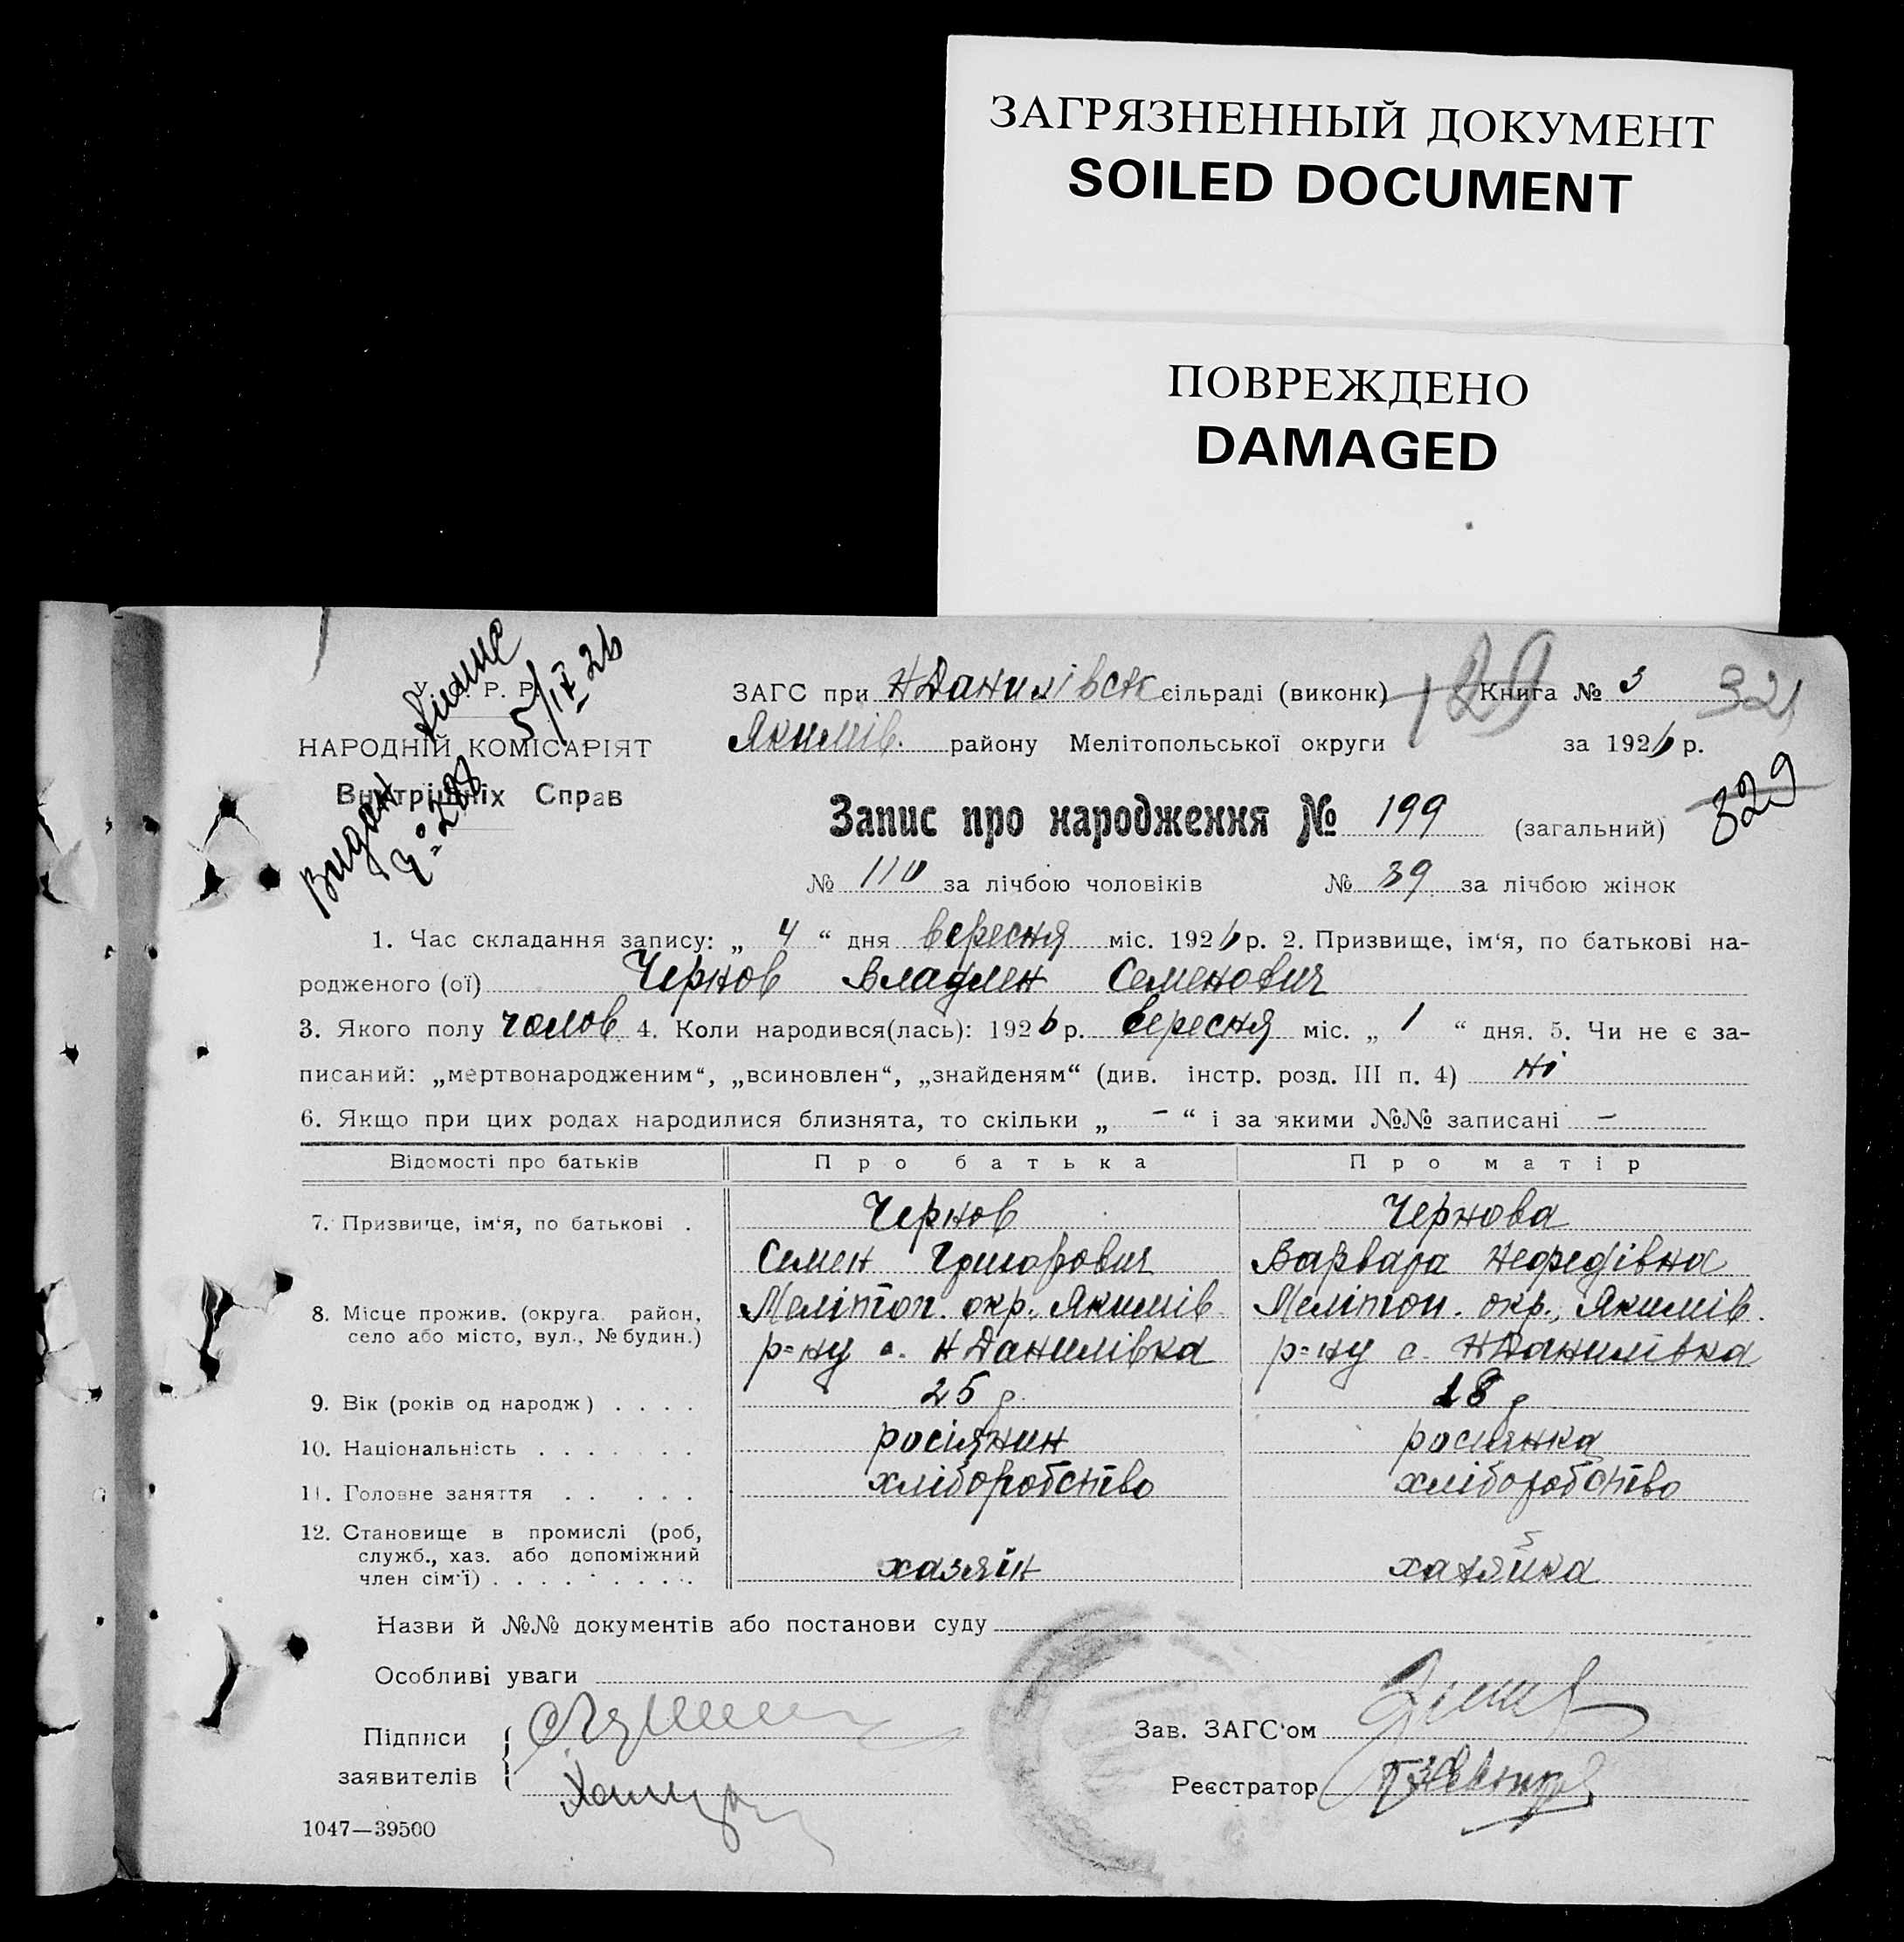 ЗАГРЯЗНЕННЫЙ ДОКУМЕНТ
SOILED DOCUMENT
ПОВРЕЖДЕНО
DAMAGED
У. Р. Р.
НАРОДНІЙ КОМІСАРІЯТ
Внутрішніх Справ
Видан
№ 288
5/IX 26
ЗАГС при Н Данилівськ сільраді (виконк) Книга № 3
129
32
Якимів. району Мелітопольської округи за 1926 р.
329
Запис про народження № 199 (загальний)
№ 110 за лічбою чоловіків № 39 за лічбою жінок
1. Час складання запису: „ 4 “ дня вересня міс. 1926 р. 2. Призвище, ім‘я, по батькові на-
родженого (ої) Чернов Владлен Семенович
3. Якого полу чолов. 4. Коли народився(лась): 1926 р. вересня міс. „ 1 “ дня. 5. Чи не є за-
писаний: „мертвонародженим“, „всиновлен“, „знайденям“ (див. інстр. розд. III п. 4) ні
6. Якщо при цих родах народилися близнята, то скільки „ – “ і за якими №№ записані –
Відомості про батьків Про батька Про матір
7. Призвище, ім‘я, по батькові . Чернов Чернова
Семен Григорович Варвара Нефедівна
8. Місце прожив. (округа. район, село або місто, вул., № будин.) Мелітоп. окр., Якимів Мелітоп. окр., Якимів.
р=ну с. Н Данилівка р=ну с. Н Данилівка
9. Вік (років од народж) . . . . 25 р. 18 р
10. Національність . . . . . . . росіянин росіянка
11. Головне заняття . . . . . хліборобство хліборобство
12. Становище в промислі (роб,
служб., хаз. або допоміжний
член сім‘ї) . . . . . . . . . хазяїн хазяйка
Назви й №№ документів або постанови суду
Особливі уваги
Підписи
заявителів
Зав. ЗАГС‘ом
Реєстратор
1047—39500